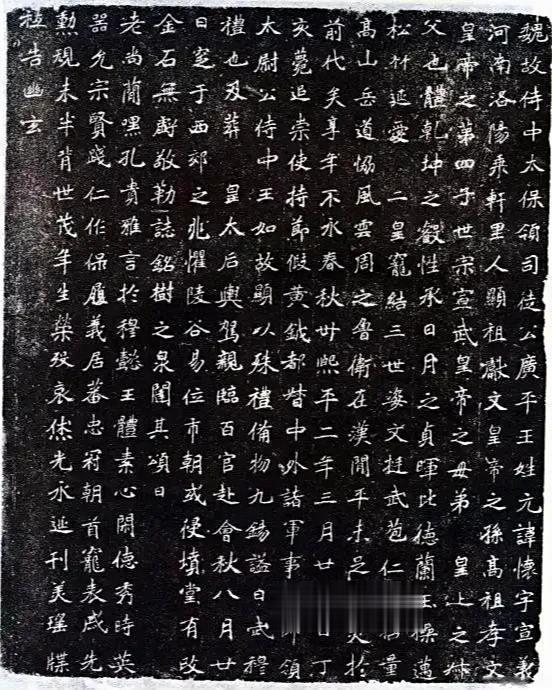 魏故侍中太保領司徒公廣平王姓元諱懷字宣義
河南洛陽乘軒里人顯祖獻文皇帝之孫高祖孝文
皇帝之第四子世宗宣武皇帝之母弟 皇上之叔
父也體乾坤之叡性承日月之貞暉比德蘭玉操邁
松竹延愛 二皇寵結三世姿文挺武苞仁 智量
高山岳道協風雲周之魯衛在漢間平未足 於
前代矣享年不永春秋卅熙平二年三月廿 日丁
亥薨追崇使持節假黃鉞都督中外諸軍事 師領
太尉公侍中王如故顯以殊禮備物九錫謚曰武穆
禮也及葬 皇太后輿駕親臨百官赴會秋八月廿
日窆于西郊之兆懼陵谷易位市朝或侵墳堂有改
金石無虧敬勒誌銘樹之泉闥其頌曰
老尚簡嘿孔貴雅言於穆懿王體素心閑德秀時英
器允宗賢踐仁作保履義居蕃忠冠朝首寵表戚先
勳規未半背世茂年生榮歿哀休光永延刊美瑤牒
祗告幽玄